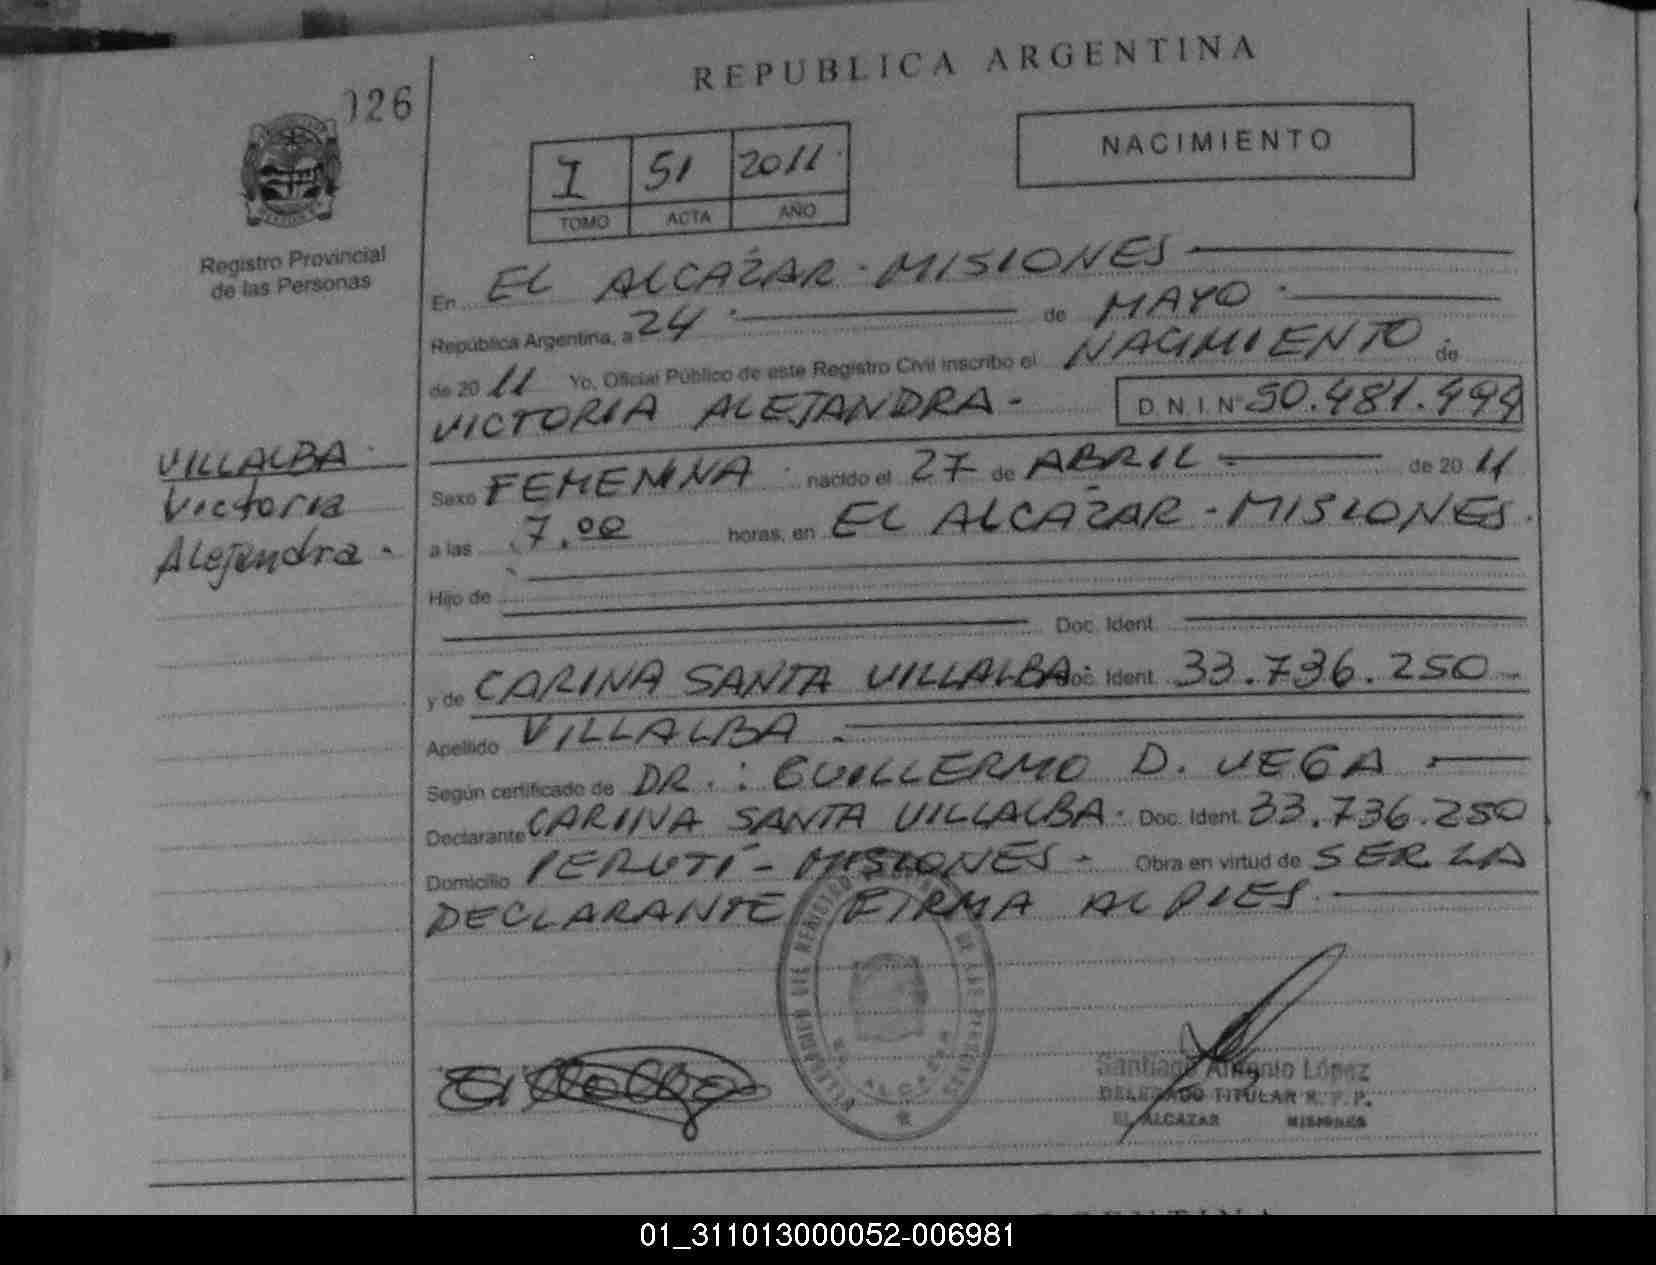 REPUBLICA ARGENTINA
026
NACIMIENTO
I 51 2011
TOMO ACTA AÑO
Registro Provincial
de las Personas
En EL ALCAZAR - MISIONES
República Argentina, a 24 de MAYO
de 2011 Yo, Oficial Público de este Registro Civil inscribo el NACIMIENTO de
VICTORIA ALEJANDRA - D.N.I. Nº 50.481.494
VILLALBA
Victoria
Alejandra -
Sexo FEMENINA nacido el 27 de ABRIL de 2011
a las 7.00 horas, en EL ALCAZAR - MISIONES.
Hijo de
Doc. Ident.
y de CARINA SANTA VILLALBA Doc. Ident. 33.736.250
Apellido VILLALBA
Según certificado de DR.: GUILLERMO D. VEGA
Declarante CARINA SANTA VILLALBA. Doc. Ident. 33.736.250
Domicilio PERUTÍ - MISIONES - Obra en virtud de SER LA
DECLARANTE FIRMA AL PIES
Santiago Antonio López
DELEGADO TITULAR R. P. P.
EL ALCAZAR MISIONES
01_311013000052-006981